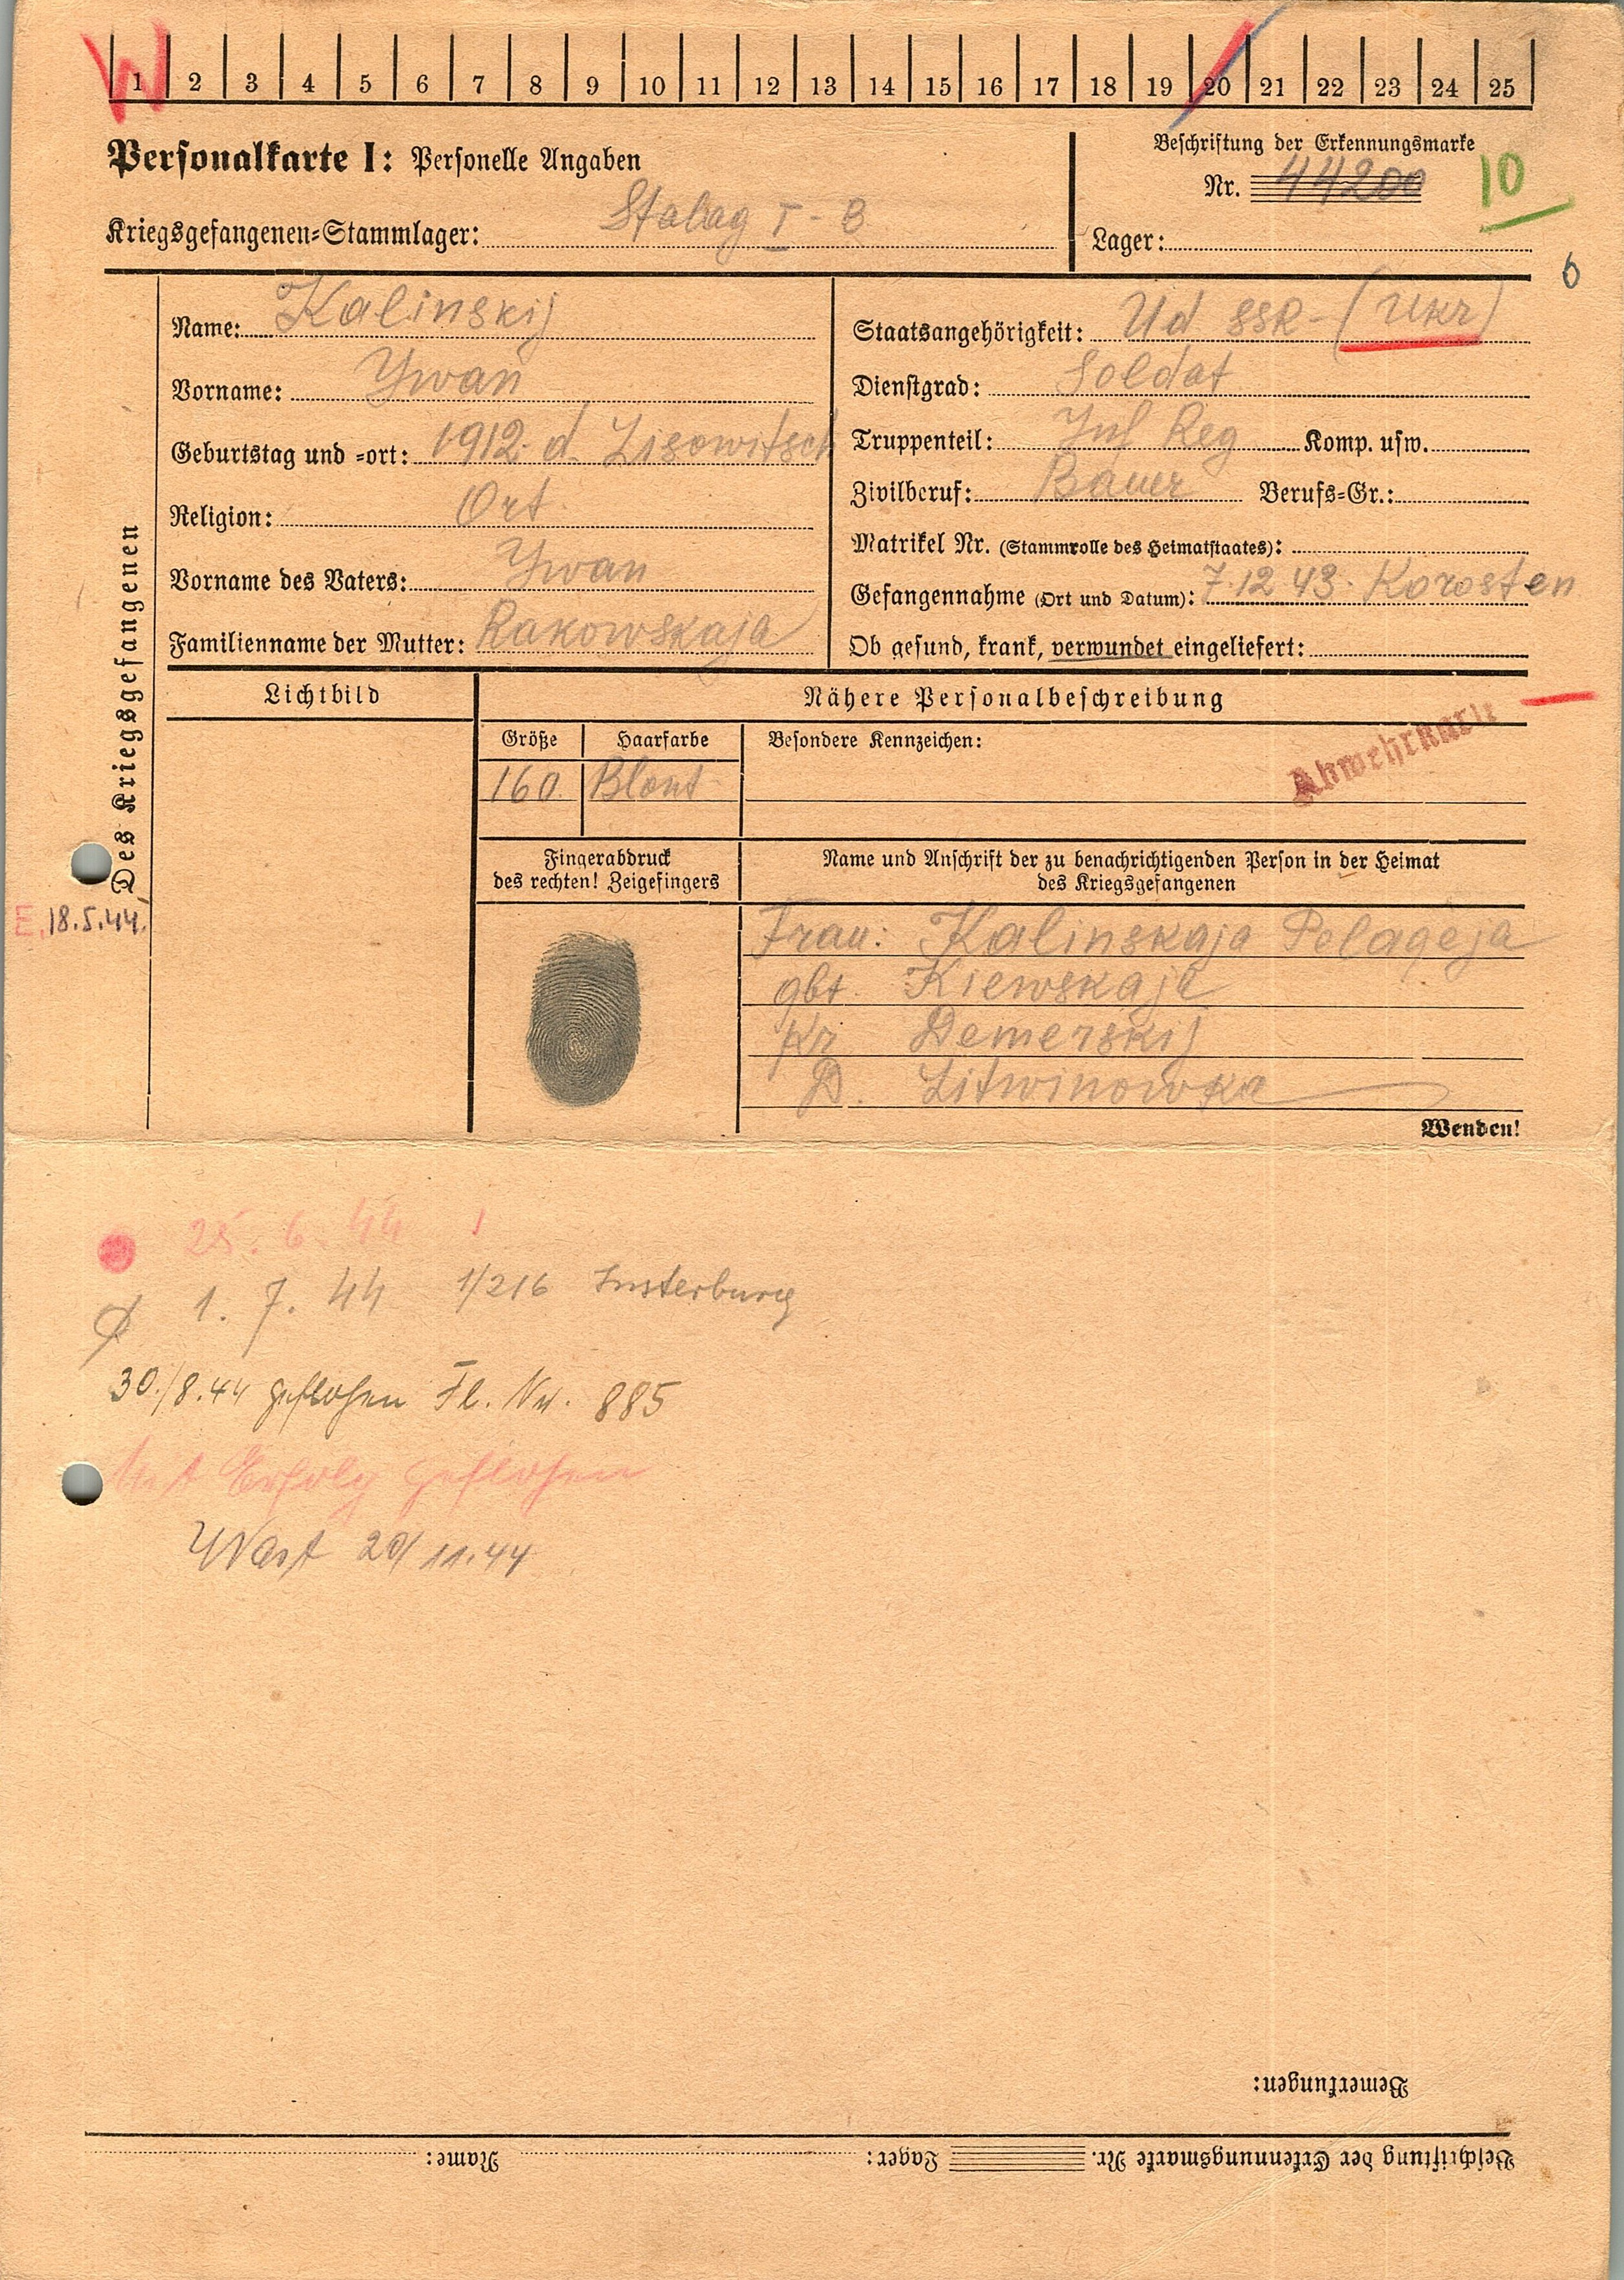 W 1 2 3 4 5 6 7 8 9 10 11 12 13 14 15 16 17 18 19 20 21 22 23 24 25
Personalkarte I: Personelle Angaben
Kriegsgefangenen-Stammlager: Stalag I-B
Beschriftung der Erkennungsmarke
Nr. 44200
10
Lager:
6
Des Kriegsgefangenen
Name: Kalinskij
Vorname: Ywan
Geburtstag und -ort: 1912. d. Lisowitsch
Religion: Ort
Vorname des Vaters: Ywan
Familienname der Mutter: Rakowskaja
Staatsangehörigkeit: Ud SSR - (Ukr)
Dienstgrad: Soldat
Truppenteil: Inf Reg Komp. usw.
Zivilberuf: Bauer Berufs-Gr.:
Matrikel Nr. (Stammrolle des Heimatstaates):
Gefangennahme (Ort und Datum): 7.12 43. Korosten
Ob gesund, krank, verwundet eingeliefert:
Lichtbild
Nähere Personalbeschreibung
Größe Haarfarbe Besondere Kennzeichen:
160 Blont
Abwehrkartei
Fingerabdruck
des rechten! Zeigefingers
Name und Anschrift der zu benachrichtigenden Person in der Heimat
des Kriegsgefangenen
E. 18.5.44.
Frau: Kalinskaja Pelageja
gbt. Kiewskaja
Kr Demerskij
D. Litwinowka
Wenden!
25. 6. 44
1. 7. 44 1/216 Insterburg
30./8.44 geflohen Fl. Nr. 885
Mit Erfolg geflohen
WAst 20/11.44
Bemerkungen:
Beschriftung der Erkennungsmarke Nr. Lager: Name: